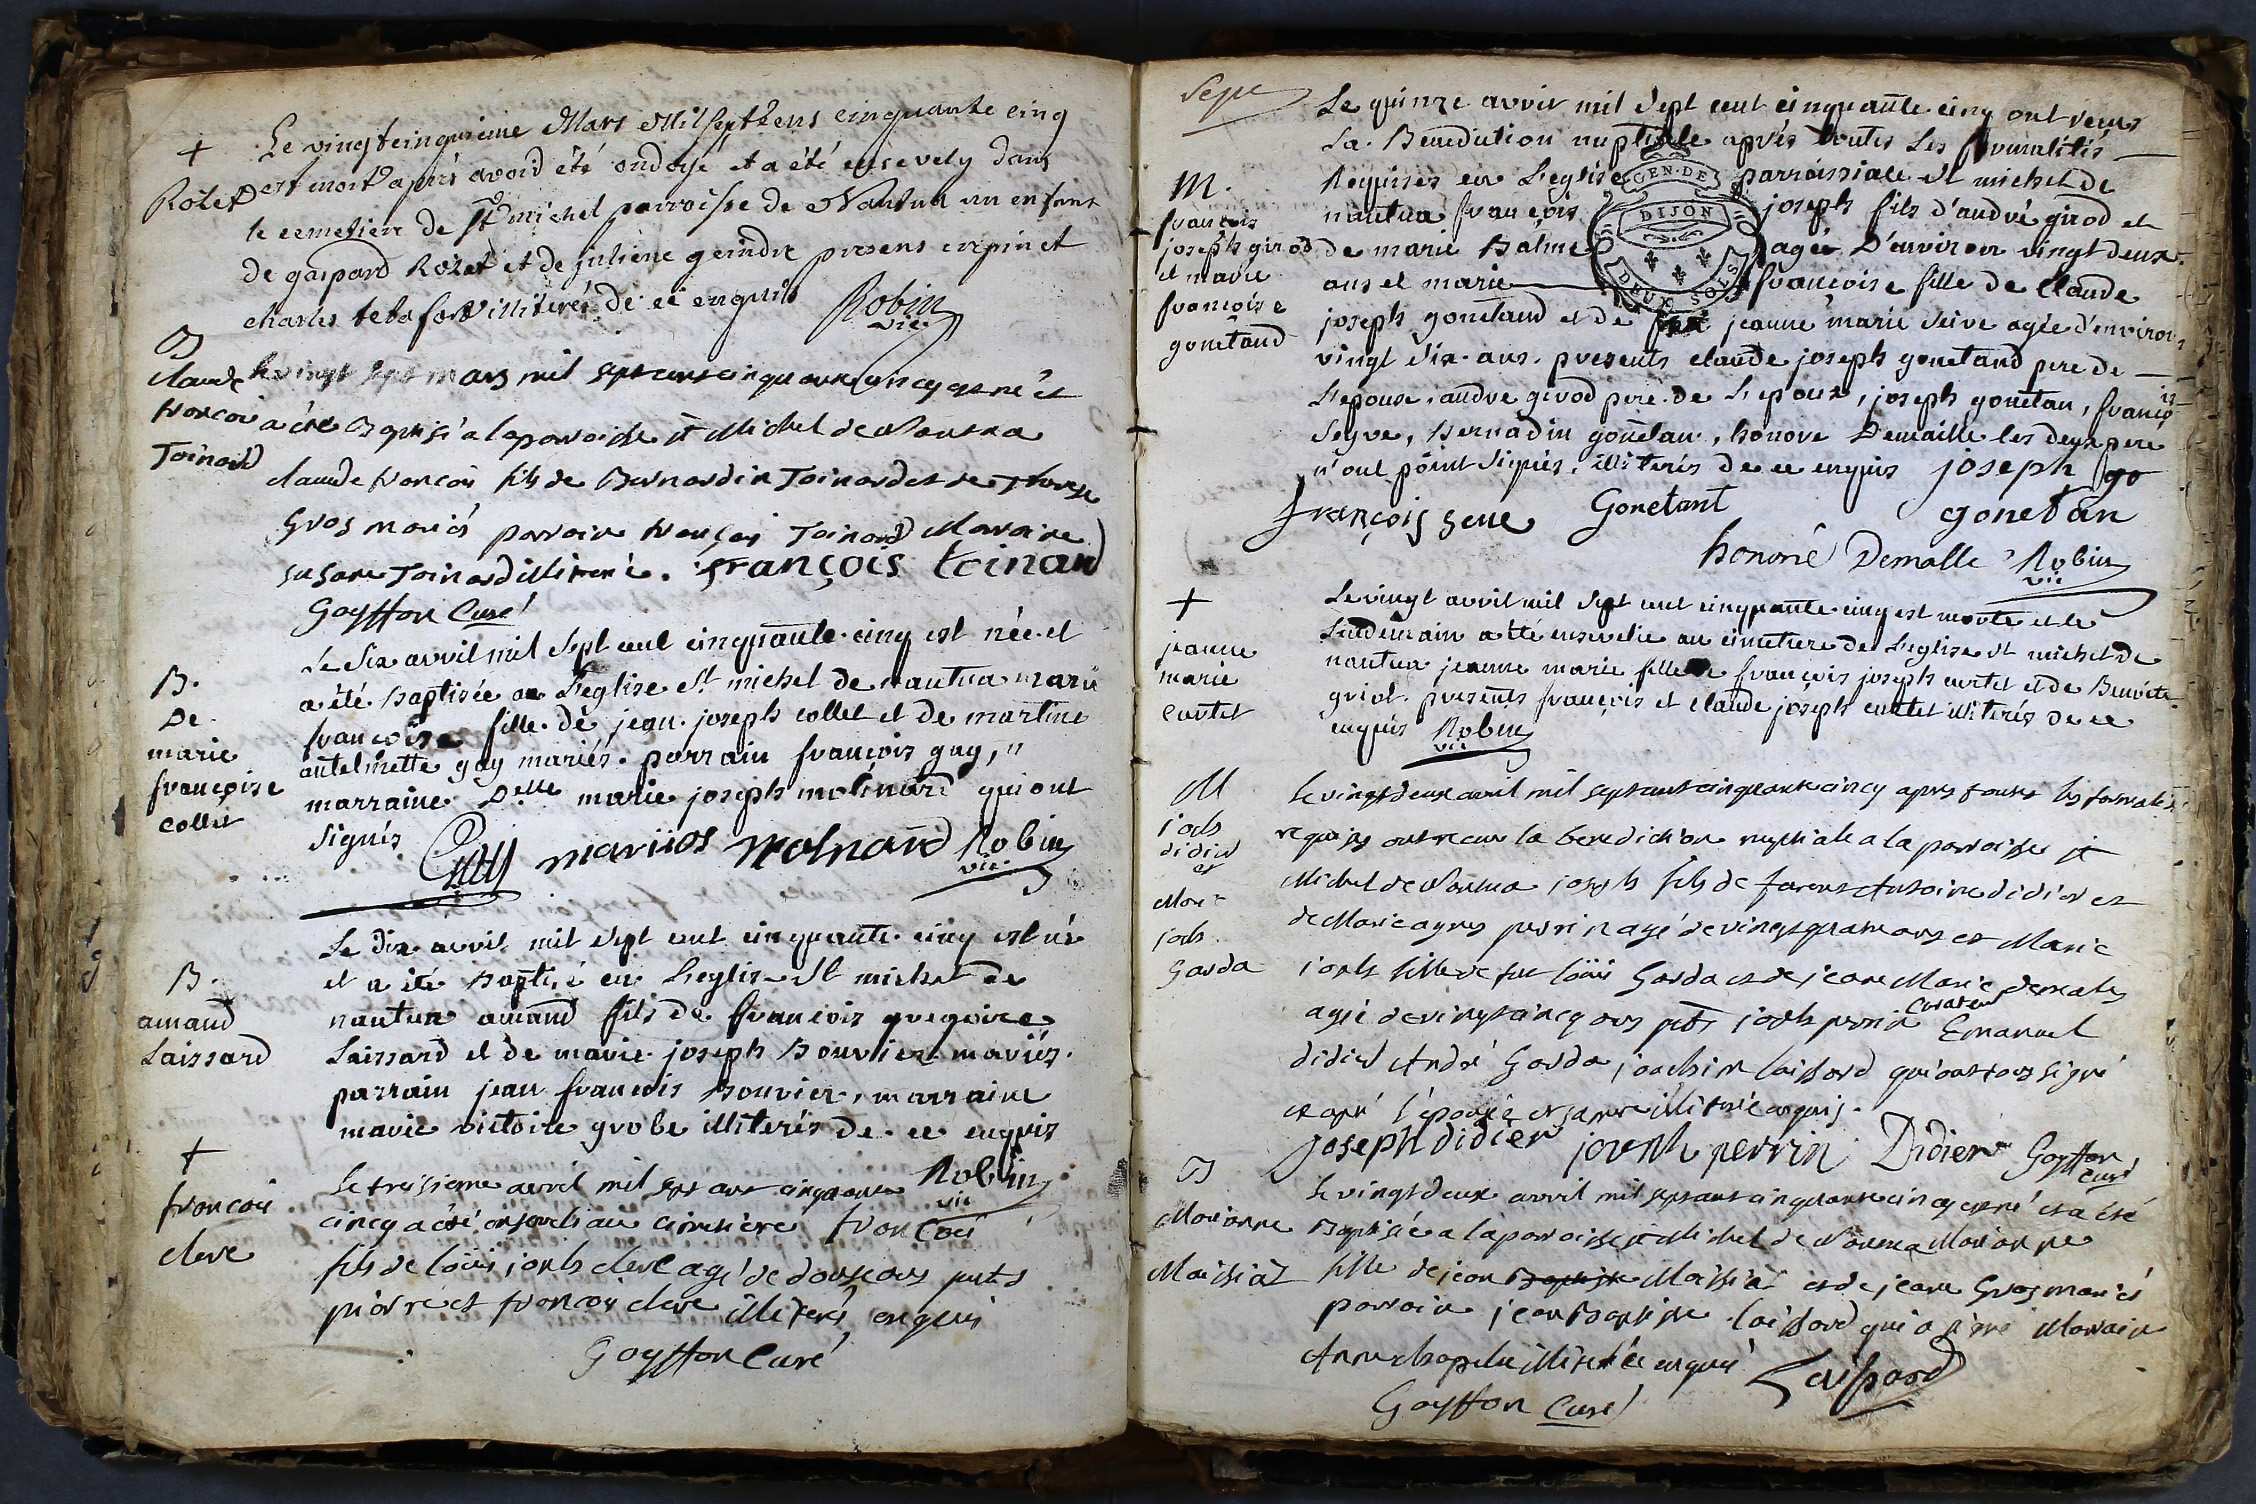 + Le vingt cinquieme Mars Mil sept cens cinquante cinq
Rolet est mort apres avoir été ondoyé et a été ensevely dans
le cemetiere de St michel parroisse de Nantua un enfant
de gaspard Rolet et de juliene geindre presens crepin et
charles tebafort illiterés de ce enquis Robin
vic.
B
claude
francois
Toinard
le vingt sept mars mil sept cent cinquante cincq est né et
a été Baptisé a la parroisse st Michel de Nantua
claude francois fils de Bernardin Toinard et de Therese
Gros mariés parrain francois Toinard Marraine
susane Toinard illiteré. François toinard
Gayffon Curé
B.
De
marie
françoise
collet
Le Six avril mil Sept cent cinquante cinq est née et
a été Baptisée en L'eglise St michel de nantua marie
francoise fille de jean joseph collet et de martine
antelmette guy mariés. parrain françois guy,
marraine Delle marie joseph molinard qui ont
signés Guy mariios molnard Robin
vic.
B.
amand
Laissard
Le dix avril mil Sept cent cinquante cinq est né
et a été Baptisé en L'eglise St michel de
nantua amand fils de francois gregoire
Laissard et de marie joseph Bouvier mariés.
parrain jean francois Bouvier, marraine
marie victoire grobe illiterés de ce enquis
Robin
vic
+
francois
cleve
Le treisieme avril mil sept cent cinquante
cincq a été ensevely au cimetiere francois
fils de loüis josph cleve agé de douse ans puts
pierre et francois cleve illiterés enquis
Gayffon Curé
Sept
M.
francois
joseph girod
et marie
françoise
gonetand
Le quinze avril mil Sept cent cinquante cinq ont receus
La Benediction nuptialle aprés toutes Les formalités
Requises en L'eglise parroissiale St michel de
nantua francois joseph fils d'andré girod et
de marie Balme agé D'environ vingt deux
ans et marie françoise fille de Claude
joseph gonetand et de jeanne marie seive agée d'environ
vingt six ans. presents claude joseph gonetand pere de
L'epouse, andre girod pere de L'epoux, joseph gonetan, françois
Seyve, Bernadin gonetan, honore Demaille les deux pere
n'ont point signés, illiterés de ce enquis joseph go
françois seve Gonetant gonetan
honoré Demalle Robin
vic
GEN. DE
DIJON
DEUX SOLS
+
jeanne
marie
curtet
Le vingt avril mil Sept cent cinquante cinq est morte et le
Lendemain a été ensevelie au cimetiere de L'eglise St michel de
nantua jeanne marie fille de françois joseph curtet et de Benoite
griot. presents françois et claude joseph curtet illiterés de ce
enquis Robin
vic
M
josh
didier
et
Marie
josh
Garda
Le vingt deux avril mil sept cent cinquante cincq apres toutes les formalites
requises ont receus la benediction nuptiale a la parroisse st
Michel de Nantua joseph fils de Antoine didier et
de Marie agnes perrin agé de vingt quatre ans et Marie
josph fille de feu loüis Garda et de jeane Marie
agée de vingt cincq ans pnts josph perrin curateur Emanuel
didier André Garda joachim laissard qui ont tous signé
et non l'épouse et illiteré enquis.
joseph didier joseph perrin Didier Gayffon
curé
B
Marianne
Maissiat
Le vingt deux avril mil sept cent cinquante cincq est né et a été
Baptisée a la parroisse st Michel de Nantua Marianne
fille de jean Baptiste Maissiat et de jeane Gros mariés
parrain jean Baptiste laissard qui a signé Marraine
Anne chapelu illiterée enquis Laissard
Gayffon Curé